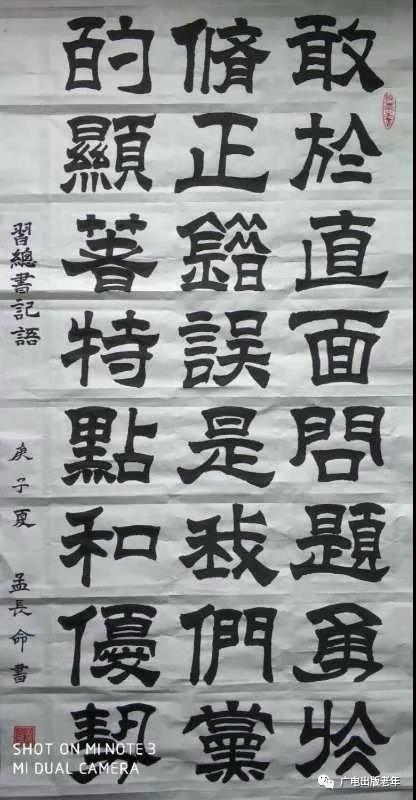 敢於直面問題勇於
脩正錯誤是我們黨
的顯著特點和優勢
習總書記語 庚子夏 孟長命書
SHOT ON MI NOTE 3
MI DUAL CAMERA
广电出版老年